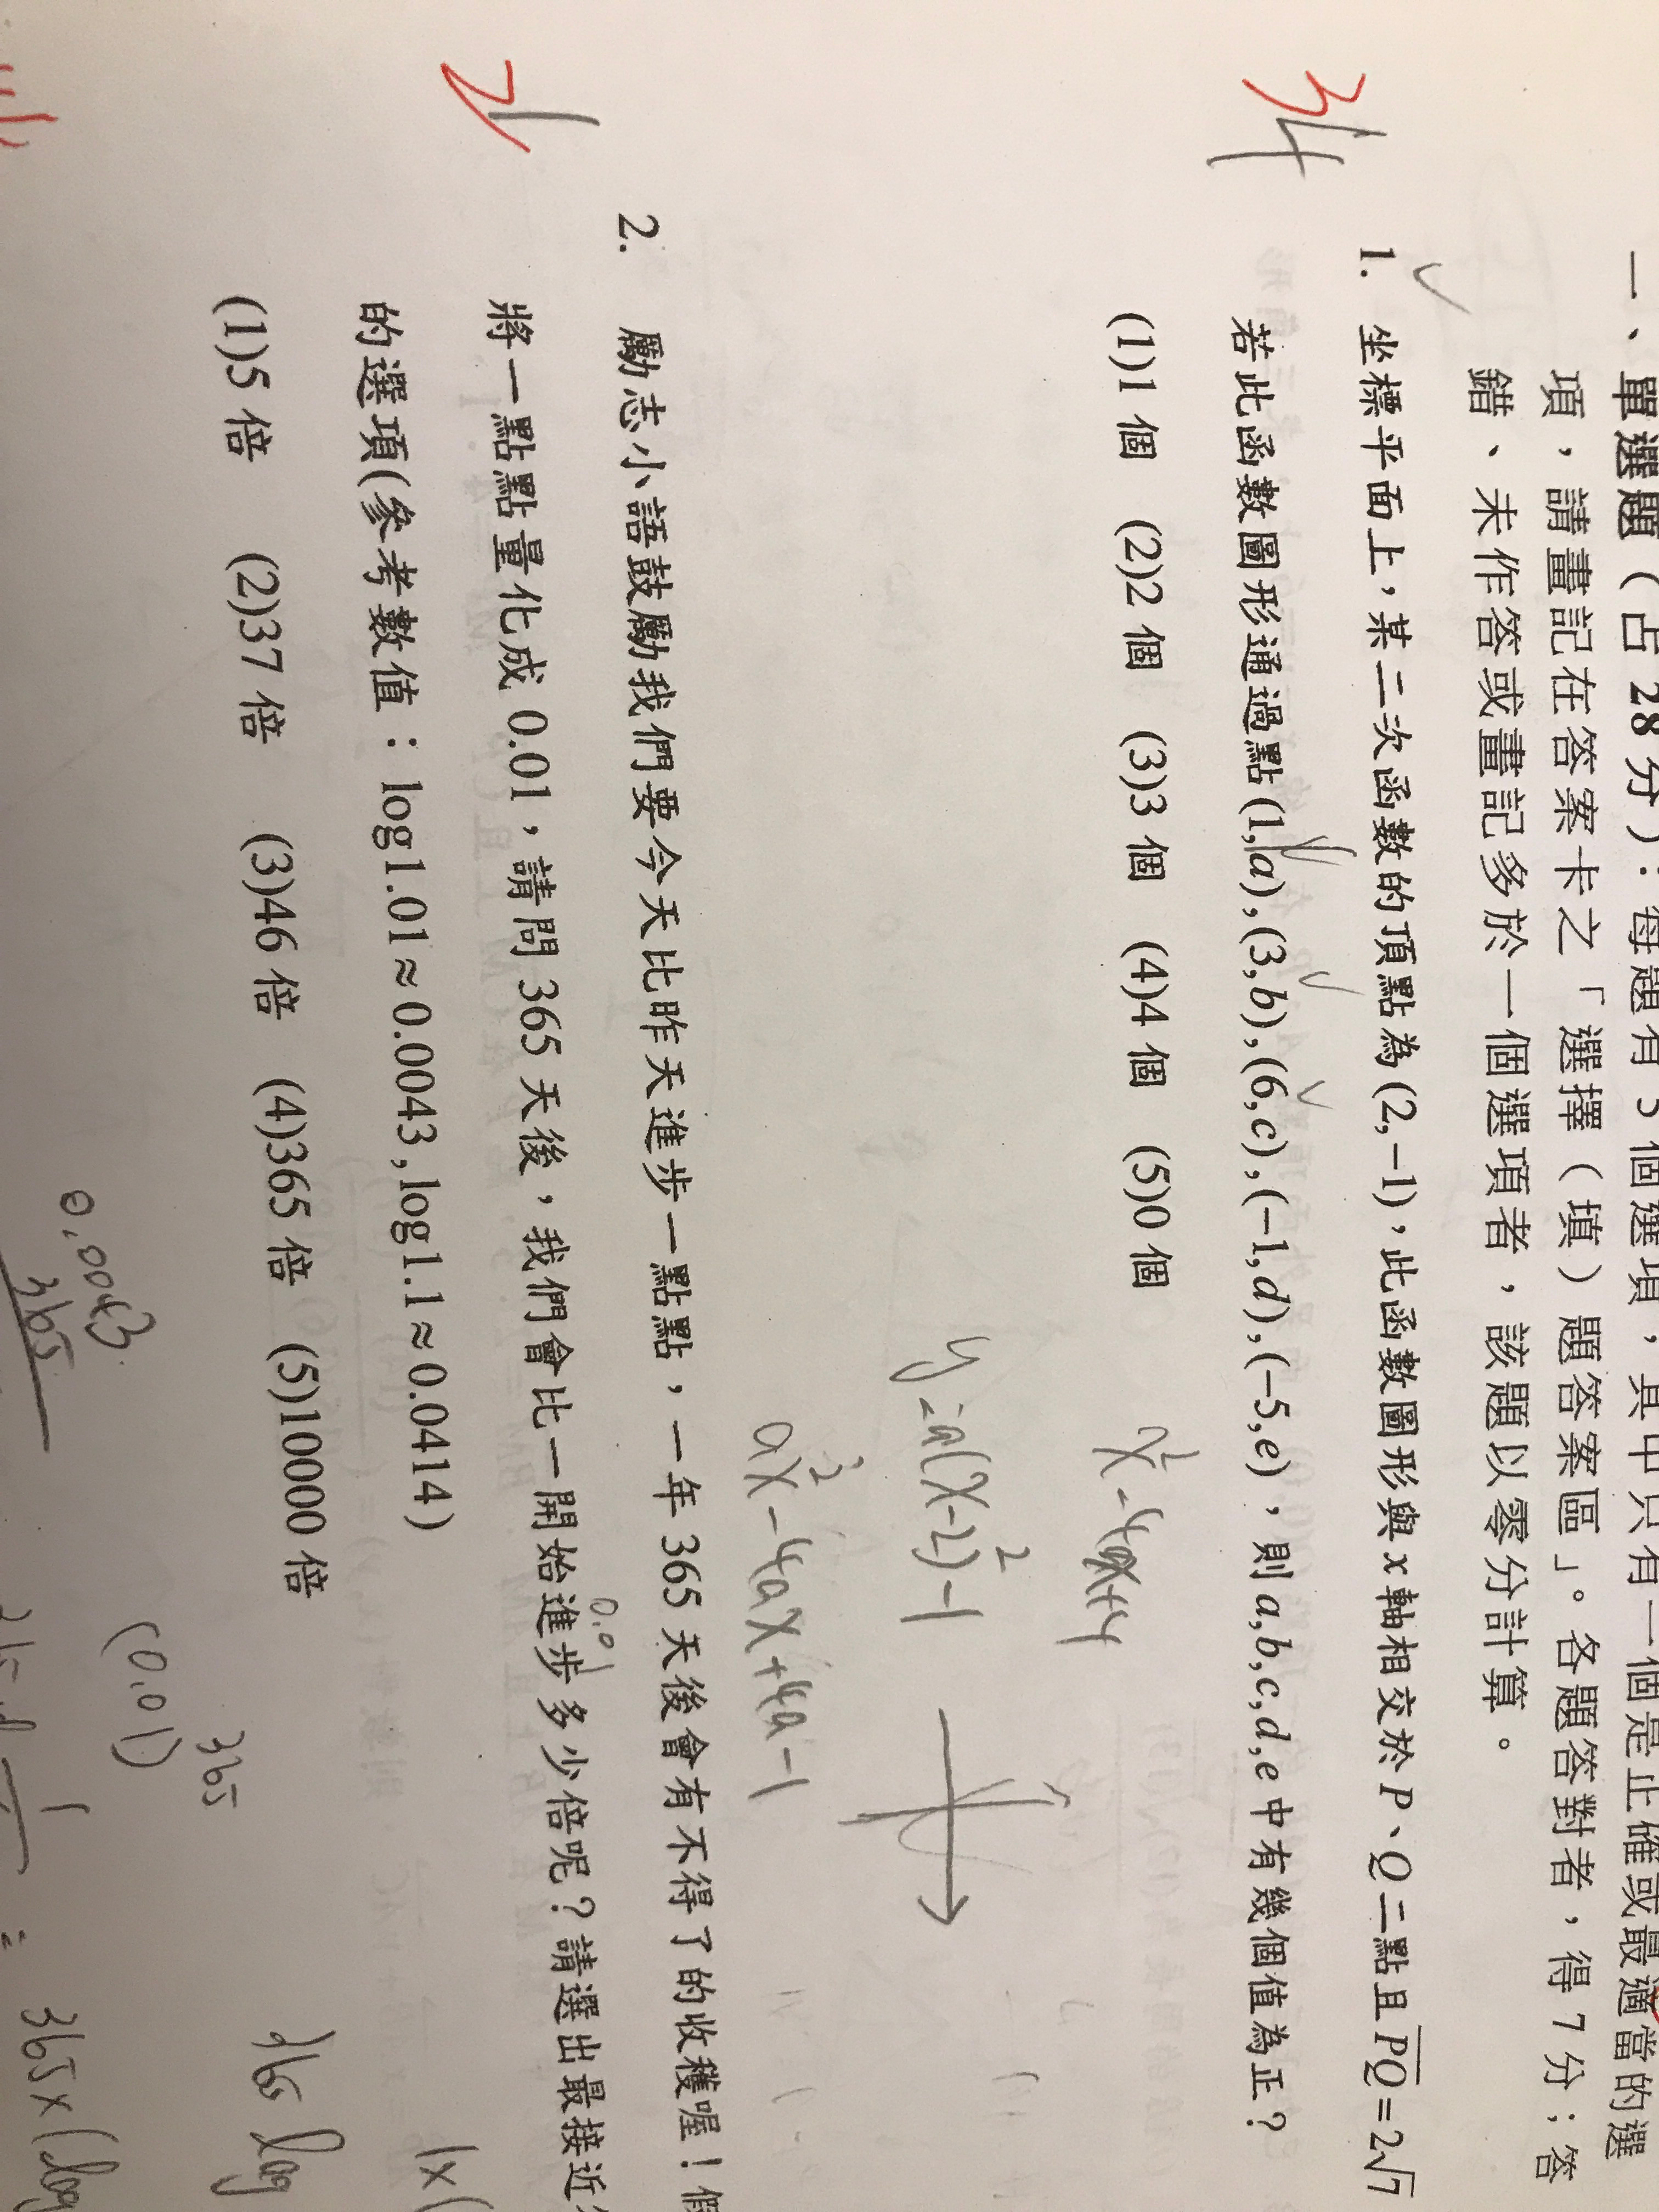 一、單選題（占 28 分）：每題有 5 個選項，其中只有一個是正確或最適當的選
項，請畫記在答案卡之「選擇（填）題答案區」。各題答對者，得 7 分；答
錯、未作答或畫記多於一個選項者，該題以零分計算。
34
1. 坐標平面上，某二次函數的頂點為(2,−1)，此函數圖形與x軸相交於P、Q二點且PQ=2√7
若此函數圖形通過點(1,a),(3,b),(6,c),(−1,d),(−5,e)，則a,b,c,d,e中有幾個值為正?
(1)1 個 (2)2 個 (3)3 個 (4)4 個 (5)0 個
x²-4x+4
y=a(x-2)²-1
ax²-4ax+4a-1
2. 勵志小語鼓勵我們要今天比昨天進步一點點，一年 365 天後會有不得了的收穫喔！假
將一點點量化成 0.01，請問 365 天後，我們會比一開始進步多少倍呢？請選出最接近
0.01
的選項(參考數值：log1.01≈0.0043,log1.1≈0.0414)
(1)5 倍 (2)37 倍 (3)46 倍 (4)365 倍 (5)10000 倍
1x(
365 log
(0.01)³⁶⁵
0.0043
365
365x(log